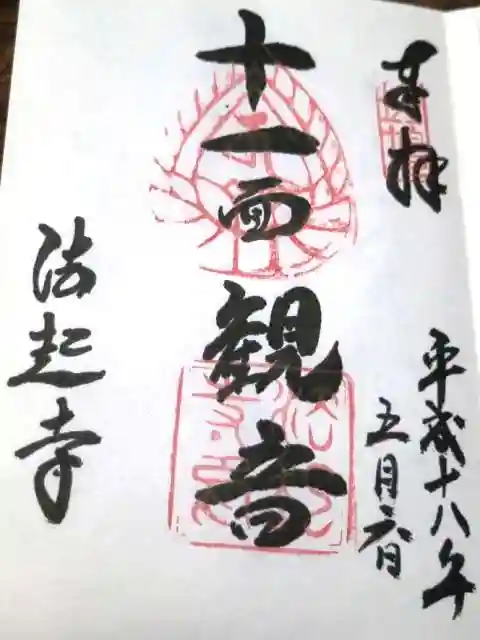 奉拝
平成十八年
五月六日
十一面観音
法起寺